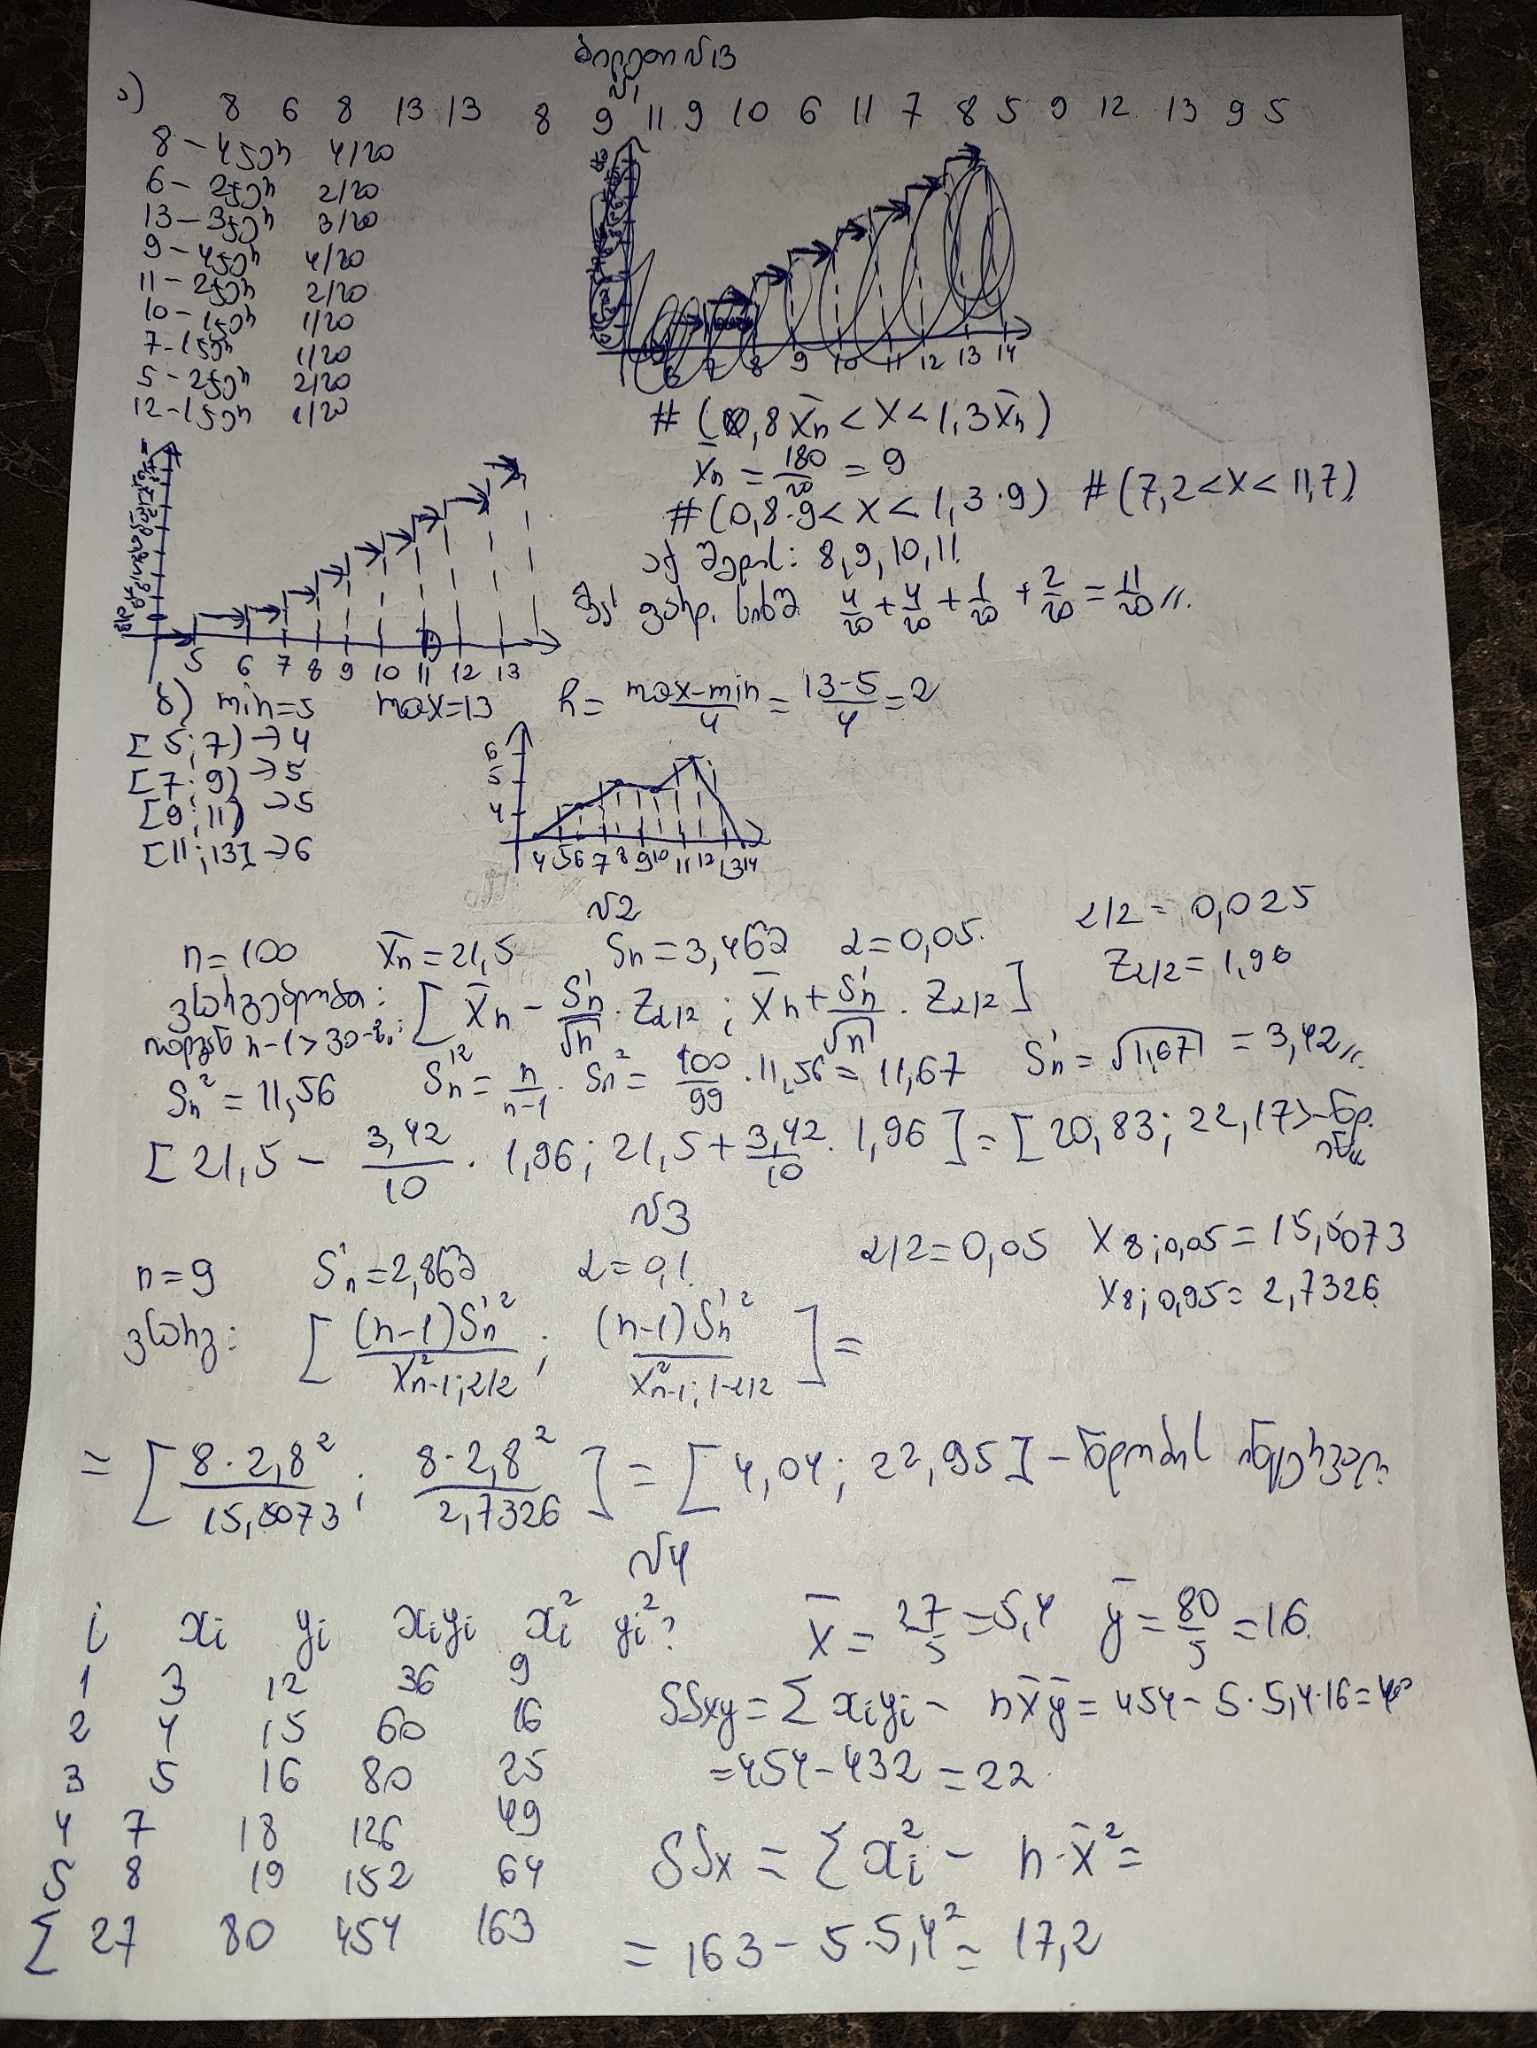 ბილეთი N13
N1
ა) 8 6 8 13 13 8 9 11 9 10 6 11 7 8 5 9 12 13 9 5
8 – 4ჯერ 4/20
6 – 2ჯერ 2/20
13 – 3ჯერ 3/20
9 – 4ჯერ 4/20
11 – 2ჯერ 2/20
10 – 1ჯერ 1/20
7 – 1ჯერ 1/20
5 – 2ჯერ 2/20
12 – 1ჯერ 1/20
6 7 8 9 10 11 12 13 14
# (0,8 x̄n < x < 1,3 x̄n)
x̄n = 180/20 = 9
# (0,8·9 < x < 1,3·9) # (7,2 < x < 11,7)
აქ შედის: 8, 9, 10, 11
ფარდ. სიხშ 4/20 + 4/20 + 1/20 + 2/20 = 11/20
5 6 7 8 9 10 11 12 13
ბ) min=5 max=13 h = max-min/4 = 13-5/4 = 2
[5;7) → 4
[7;9) → 5
[9;11) → 5
[11;13] → 6
6
5
4
4 5 6 7 8 9 10 11 12 13 14
N2
n=100 x̄n = 21,5 Sn = 3,4 α = 0,05. α/2 = 0,025
Zα/2 = 1,96
ვსარგებლობთ: [x̄n – S'n/√n · Zα/2 ; x̄n + S'n/√n · Zα/2]
რადგან n-1>30-ზე:
Sn² = 11,56 S'n² = n/n-1 · Sn² = 100/99 · 11,56 = 11,67 S'n = √11,67 = 3,42
[21,5 – 3,42/10 · 1,96; 21,5 + 3,42/10 · 1,96] = [20,83; 22,17] – ნდ. ინ
N3
n=9 S'n = 2,8 α = 0,1 α/2 = 0,05 X8;0,05 = 15,5073
X8;0,95 = 2,7326
ვსარგ: [(n-1)S'n²/X²n-1;α/2 ; (n-1)S'n²/X²n-1;1-α/2] =
= [8·2,8²/15,5073 ; 8·2,8²/2,7326] = [4,04; 22,95] – ნდობის ინტერვალი
N4
i xi yi xiyi xi² yi²? x̄ = 27/5 = 5,4 ȳ = 80/5 = 16
1 3 12 36 9
2 4 15 60 16
3 5 16 80 25
4 7 18 126 49
5 8 19 152 64
Σ 27 80 454 163
SSxy = Σ xiyi – nx̄ȳ = 454 – 5·5,4·16 =
= 454 – 432 = 22
SSx = Σ xi² – n·x̄² =
= 163 – 5·5,4² = 17,2